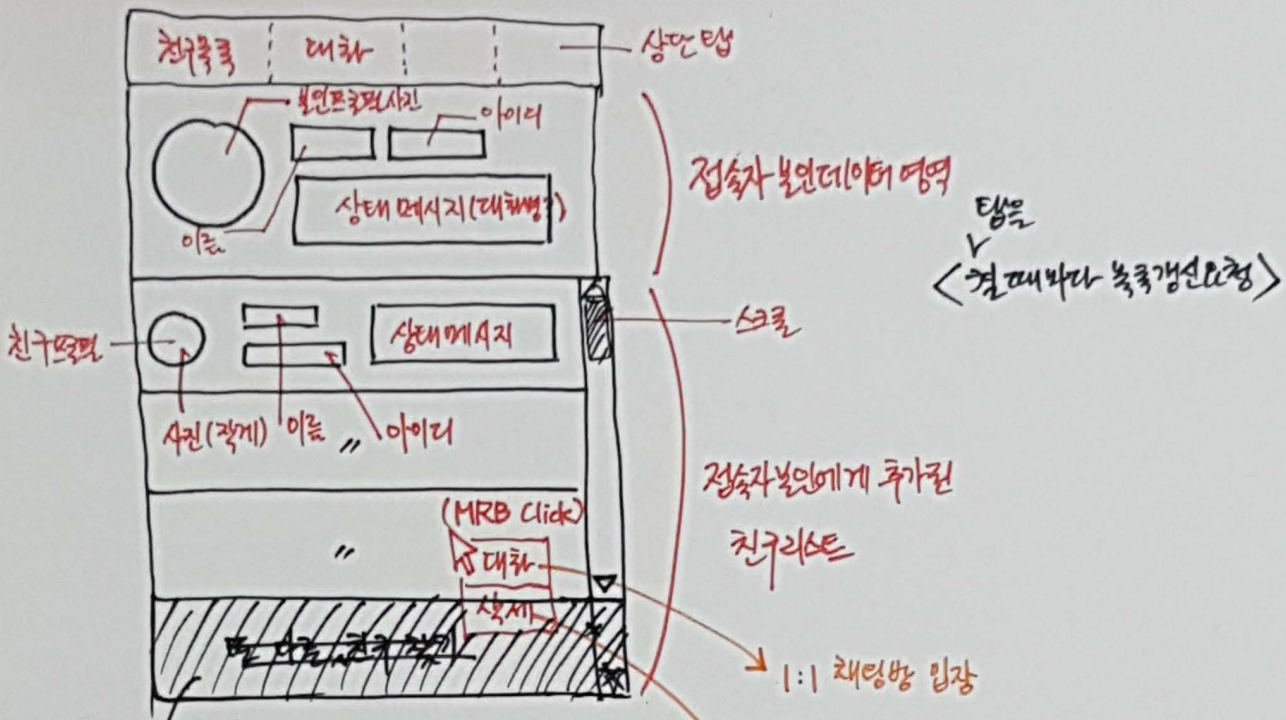 친구목록 대화 상단 탭
본인프로필사진
아이디
상태메시지(대화명)
이름
접속자 본인데이터 영역
탭을
<켤 때마다 목록갱신요청>
상태메시지
스크롤
친구프로필
사진(작게) 이름 아이디
〃
접속자본인에게 추가된
친구리스트
(MRB Click)
대화
〃
삭제
1:1 채팅방 입장